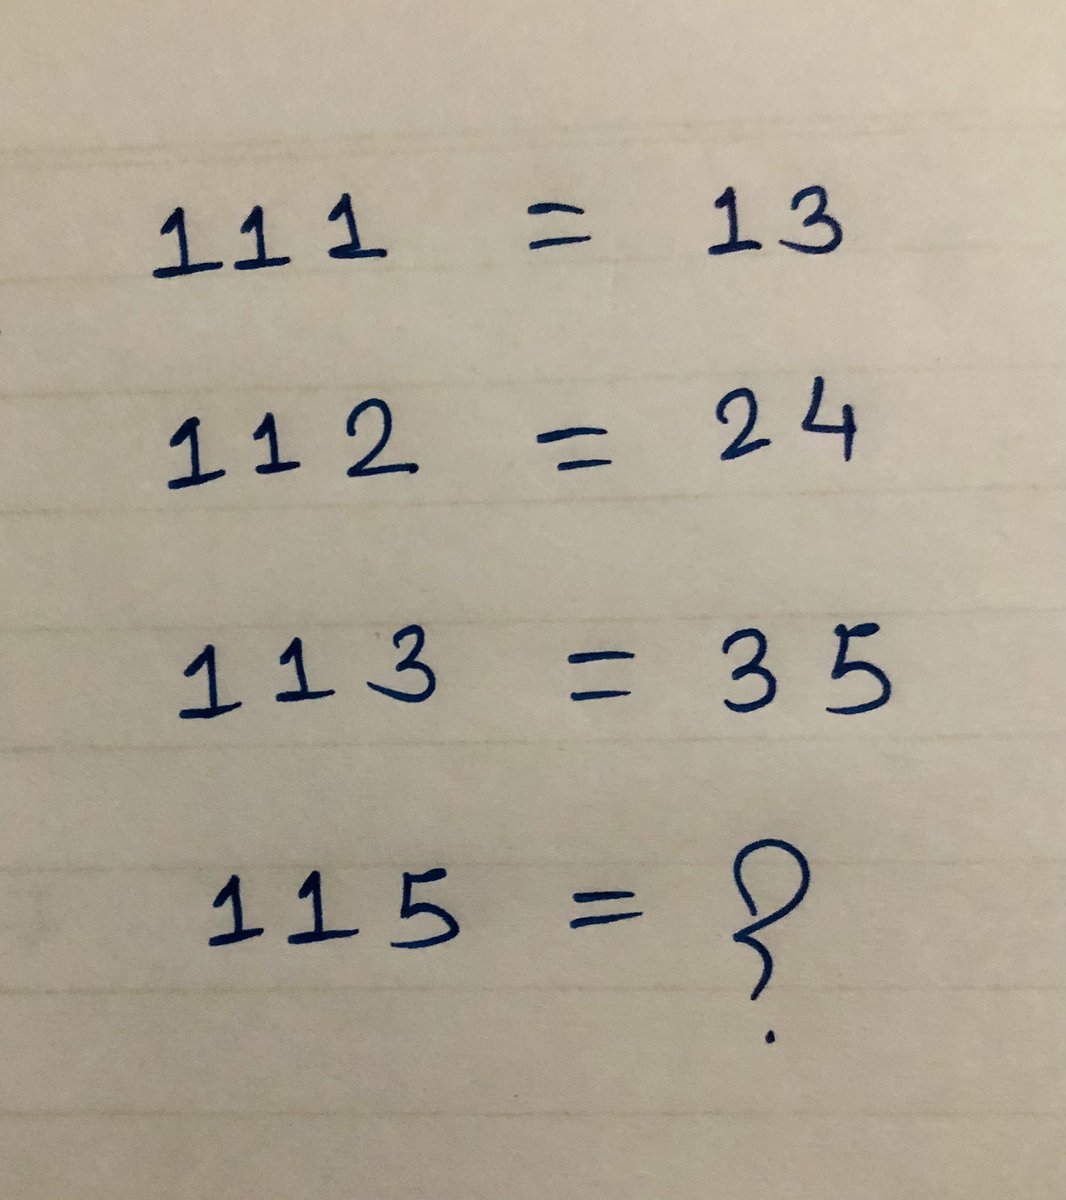 111 = 13
112 = 24
113 = 35
115 = ?